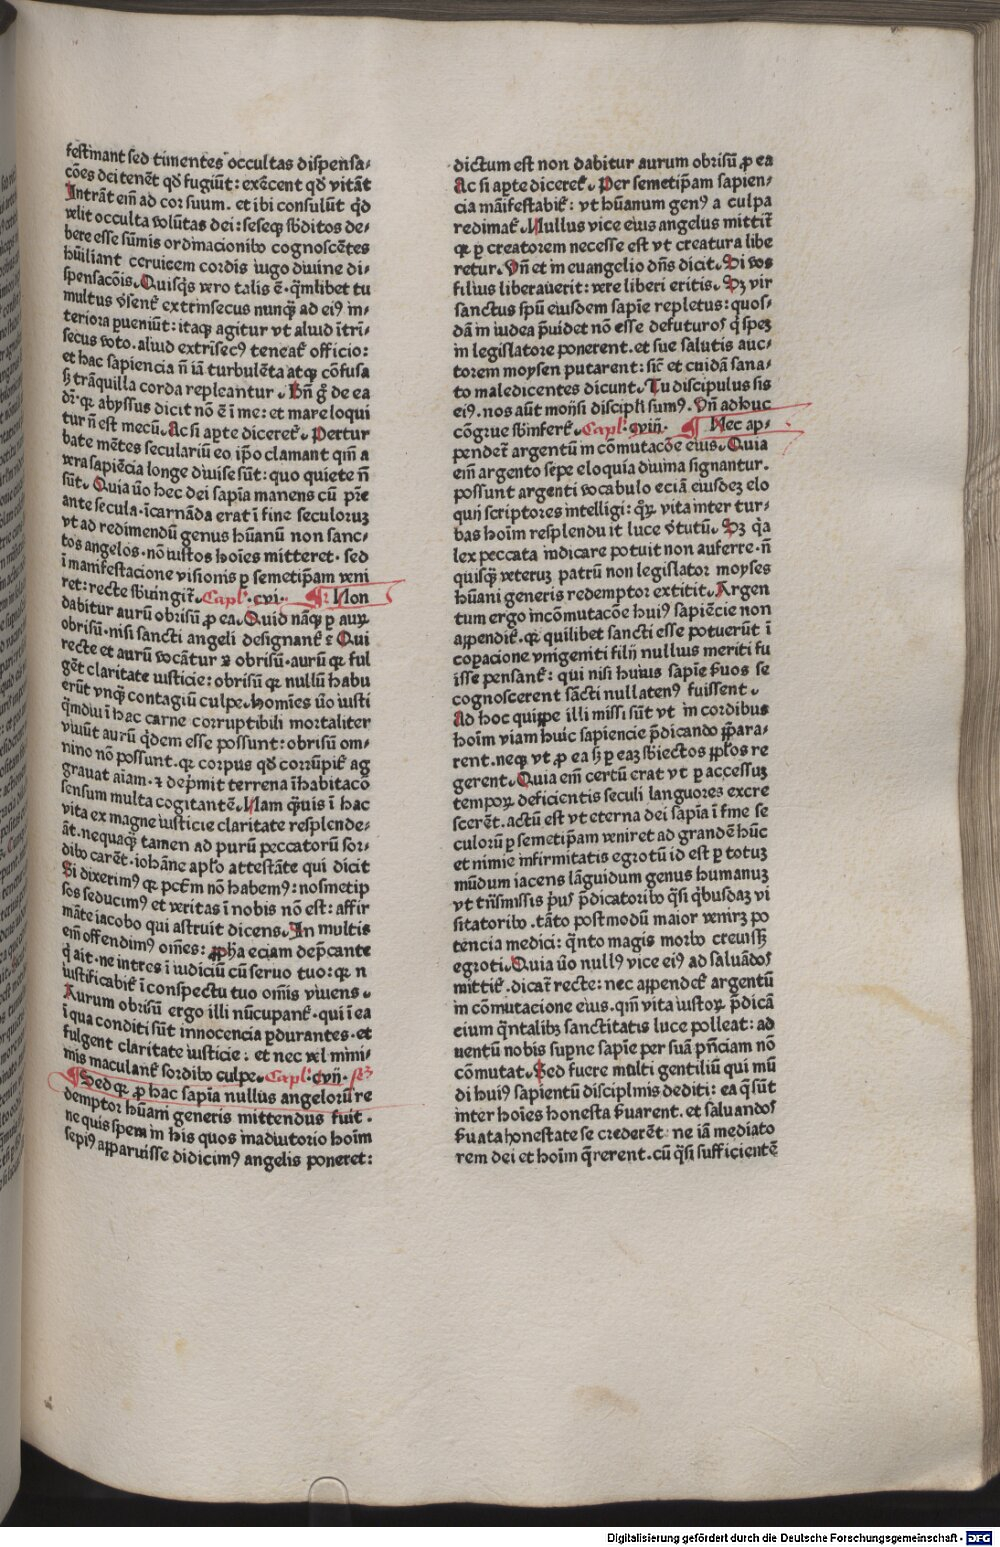 festinant sed timentes occultas dispensa-
cōes dei tenēt qd̄ fugiūt: exercent qd̄ vitāt
Intrāt em̄ ad cor suum. et ibi consulūt qd
velit occulta volūtas dei: seseqꝫ sb̄ditos de-
bere esse sūmis ordinacionibꝰ cognoscētes
hūiliant ceruicem cordis iugo diuine di-
spensacōis. Quisqꝫ vero talis ē. q̄mlibet tu
multus vr̄sent᷑ extrinsecus nunqꝫ ad eiꝰ in-
teriora ꝑueniūt: itaqꝫ agitur vt aliud ītri-
secus voto. aliud extrīsecꝰ teneat᷑ officio:
et hac sapiencia n̄ iā turbulēta atqꝫ cōfusa
sꝫ trāquilla corda repleantur. Vn̄ gͦ de ea
dr̄. qꝛ abyssus dicit nō ē ī me: et mare loqui
tur n̄ est mecū. Ac si aꝑte diceret᷑. Pertur
bate mētes seculariū eo ip̄o clamant qm̄ a
vera sapiēcia longe diuise sūt: quo quiete n̄
sūt. Quia v̄o hec dei sapīa manens cū pr̄e
ante secula. īcarnāda erat ī fine seculoruꝫ
vt ad redimendū genus hūanū non sanc-
tos angelos. nō iustos hoīes mitteret. sed
ī manifestacione visionis ꝑ semetip̄am veni
ret: recte sb̄iungit᷑. Capl᷑. cvi. ¶ Non
dabitur aurū obrisū ꝓ ea. Quid nāqꝫ ꝑ auꝝ
obrisū. nisi sancti angeli designant᷑: Qui
recte et aurū vocātur ⁊ obrisū. aurū qꝛ ful
gēt claritate iusticie: obrisū qꝛ nullū habu
erūt vnqꝫ contagiū culpe. homīes v̄o iusti
q̄mdiu ī hac carne corruptibili mortaliter
viuūt aurū qͥdem esse possunt: obrisū om-
nino nō possunt. qꝛ corpus qd̄ corrūpit᷑ ag
grauat aīam. ⁊ dep̄mit terrena īhabitacō
sensum multa cogitantē. Nam qͣuis ī hac
vita ex magne iusticie claritate resplende-
āt. nequaqꝫ tamen ad purū peccatorū sor-
dibꝰ carēt. iohāne apl̄o attestāte qui dicit
Si dixerimꝰ qꝛ pctm̄ nō habemꝰ: nosmetip
sos seducimꝰ et veritas ī nobis nō est: affir
māte iacobo qui astruit dicens. In multis
em̄ offendimꝰ om̄es: ꝓpha eciam dep̄cante
qͥ ait. ne intres ī iudiciū cū seruo tuo: qꝛ n
iustificabit᷑ ī conspectu tuo om̄is viuens.
Aurum obrisū ergo illi nūcupant᷑. qui ī ea
ī qua conditi sūt innocencia ꝑdurantes. et
fulgent claritate iusticie: et nec vel mini-
mis maculant᷑ sordibꝰ culpe. Capl᷑. cvij.
¶ Sed qꝛ ꝓ hac sapīa nullus angelorū re
demptor hūani generis mittendus fuit.
ne quis spem in his quos in adiutorio hoīm
sepiꝰ apparuisse didicimꝰ angelis poneret:
dictum est non dabitur aurum obrisū ꝓ ea
Ac si aꝑte diceret᷑. Per semetip̄am sapien-
cia māifestabit᷑: vt hūanum genꝰ a culpa
redimat᷑. Nullus vice eius angelus mittit᷑
qꝛ ꝑ creatorem necesse est vt creatura libe
retur. Vn̄ et in euangelio dn̄s dicit. Si vos
filius liberauerit: vere liberi eritis. Sꝫ vir
sanctus spū eiusdem sapīe repletus: quos-
dā in iudea p̄uidet nō esse defuturos qͥ speꝫ
in legislatore ponerent. et sue salutis auc-
torem moysen putarent: sic̄ et cuidā sana-
to maledicentes dicunt. Tu discipulus sis
eiꝰ. nos aūt moysi discipl̓i sumꝰ. Vn̄ adhuc
cōgrue sb̄infert᷑. Capl᷑. cviij. ¶ Nec ap-
pendet᷑ argentū in cōmutacōe eius. Quia
em̄ argento sepe eloquia diuina signantur.
possunt argenti vocabulo eciā eiusdeꝫ elo
quij scriptores intelligi: qͦꝝ vita inter tur-
bas hoīm resplenduit luce v̓tutū. Sꝫ qͥa
lex peccata indicare potuit non auferre. n̄
quisqꝫ veteruꝫ patrū non legislator moyses
hūani generis redemptor extitit. Argen
tum ergo in cōmutacōe huiꝰ sapiēcie non
appendit᷑. qꝛ quilibet sancti esse potuerūt ī
cōpacione vnigeniti filij nullius meriti fu
isse pensant᷑: qui nisi huius sapīe ẜuos se
cognoscerent sācti nullatenꝰ fuissent.
Ad hoc quippe illi missi sūt vt in cordibus
hoīm viam huic sapiencie p̄dicando p̄para-
rent. neqꝫ vt ꝓ ea sꝫ ꝑ eaꝫ sb̄iectos ppl̓os re
gerent. Quia em̄ certū erat vt ꝑ accessuꝫ
tempoꝝ deficientis seculi languores excre
scerēt. actū est vt eterna dei sapīa ī fine se
culorū ꝑ semetip̄am veniret ad grandē hūc
et nimie infirmitatis egrotū id est ꝑ totuꝫ
mūdum iacens lāguidum genus humanuꝫ
vt trāsmissis p̓us p̄dicatoribꝰ qͣsi qͥbusdaꝫ vi
sitatoribꝰ. tāto postmodū maior venireꝫ po
tencia medici: qͣnto magis morbꝰ creuissꝫ
egroti. Quia v̄o nullꝰ vice eiꝰ ad saluādos
mittit᷑. dicat᷑ recte: nec appendet᷑ argentū
in cōmutacione eius. qm̄ vita iustoꝝ p̄dicā
cium qͣntalibꝫ sanctitatis luce polleat: ad
uentū nobis suꝑne sapīe per suā pn̄ciam nō
cōmutat. Sed fuere multi gentiliū qui mū
di huiꝰ sapientū disciplinis dediti: ea q̄ sūt
inter hoīes honesta ẜuarent. et saluandos
ẜuata honestate se crederēt: ne iā mediato
rem dei et hoīm q̄rerent. cū qͣsi sufficientē
Digitalisierung gefördert durch die Deutsche Forschungsgemeinschaft - DFG